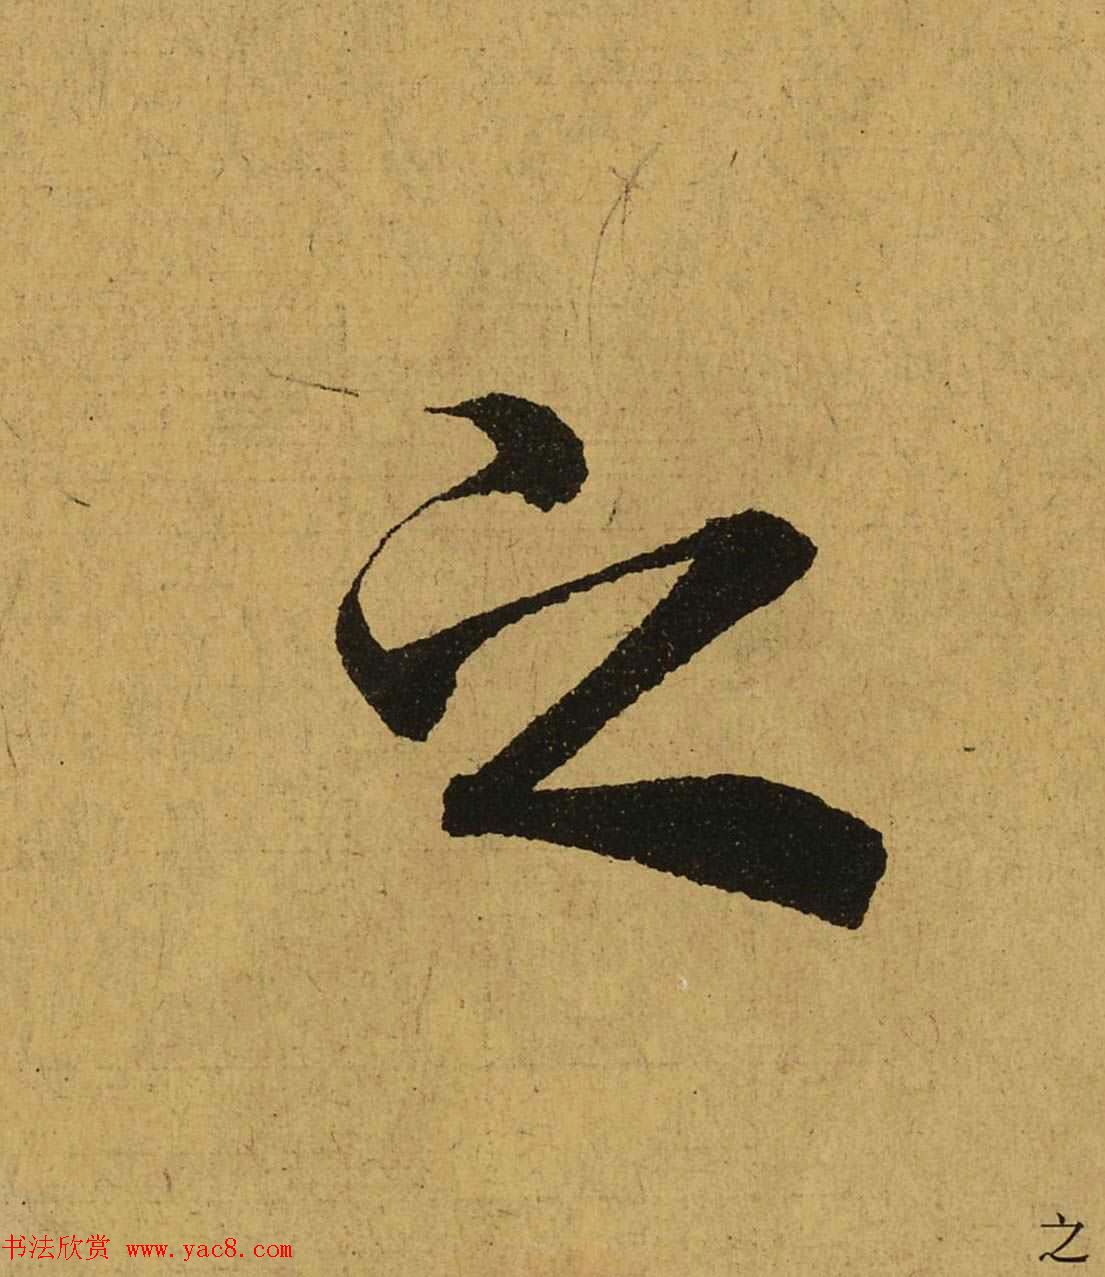 之
书法欣赏 www.yac8.com
之